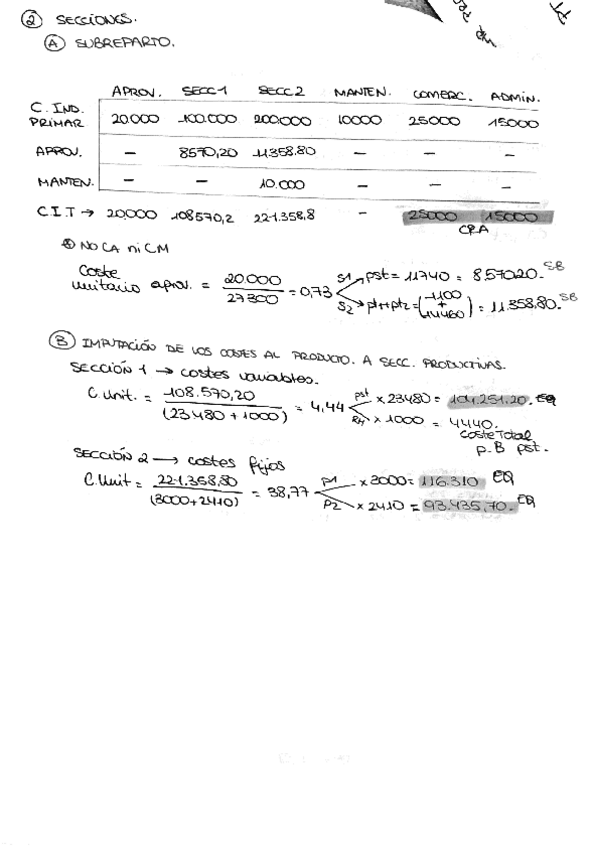 ② SECCIONES.
Ⓐ SUBREPARTO.
APROV. SECC1 SECC2 MANTEN. COMERC. ADMIN.
C. IND. PRIMAR 20.000 100.000 200.000 10000 25000 15000
APROV. — 8570,20 11358.80 — — —
MANTEN. — — 10.000 — — —
C.I.T → 20,000 108570,2 221.358,8 — 25000 15000
CRA
NO CA ni CM
Coste unitario aprov. = 20.000 / 27300 = 0,73
S1 → pst = 11740 = 8.570,20.- SB
S2 → pt1+pt2 = (1100 + 14460) = 11.358,80.- SB
Ⓑ IMPUTACIÓN DE LOS COSTES AL PRODUCTO. A SECC. PRODUCTIVAS.
SECCIÓN 1 → costes variables.
C. Unit. = 108.570,20 / (23480 + 1000) = 4,44
pst × 23480 = 104.251,20. EQ
× 1000 = 4440.
Coste Total
p.B pst.
SECCIÓN 2 → costes fijos
C. Unit = 221.358,80 / (3000+2410) = 38,77
P1 × 3000 = 116.310 EQ
P2 × 2410 = 93.435,70.- EQ